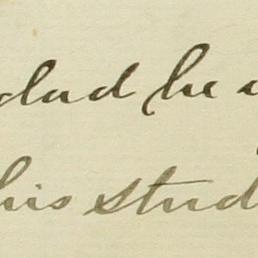 dad he
his stud